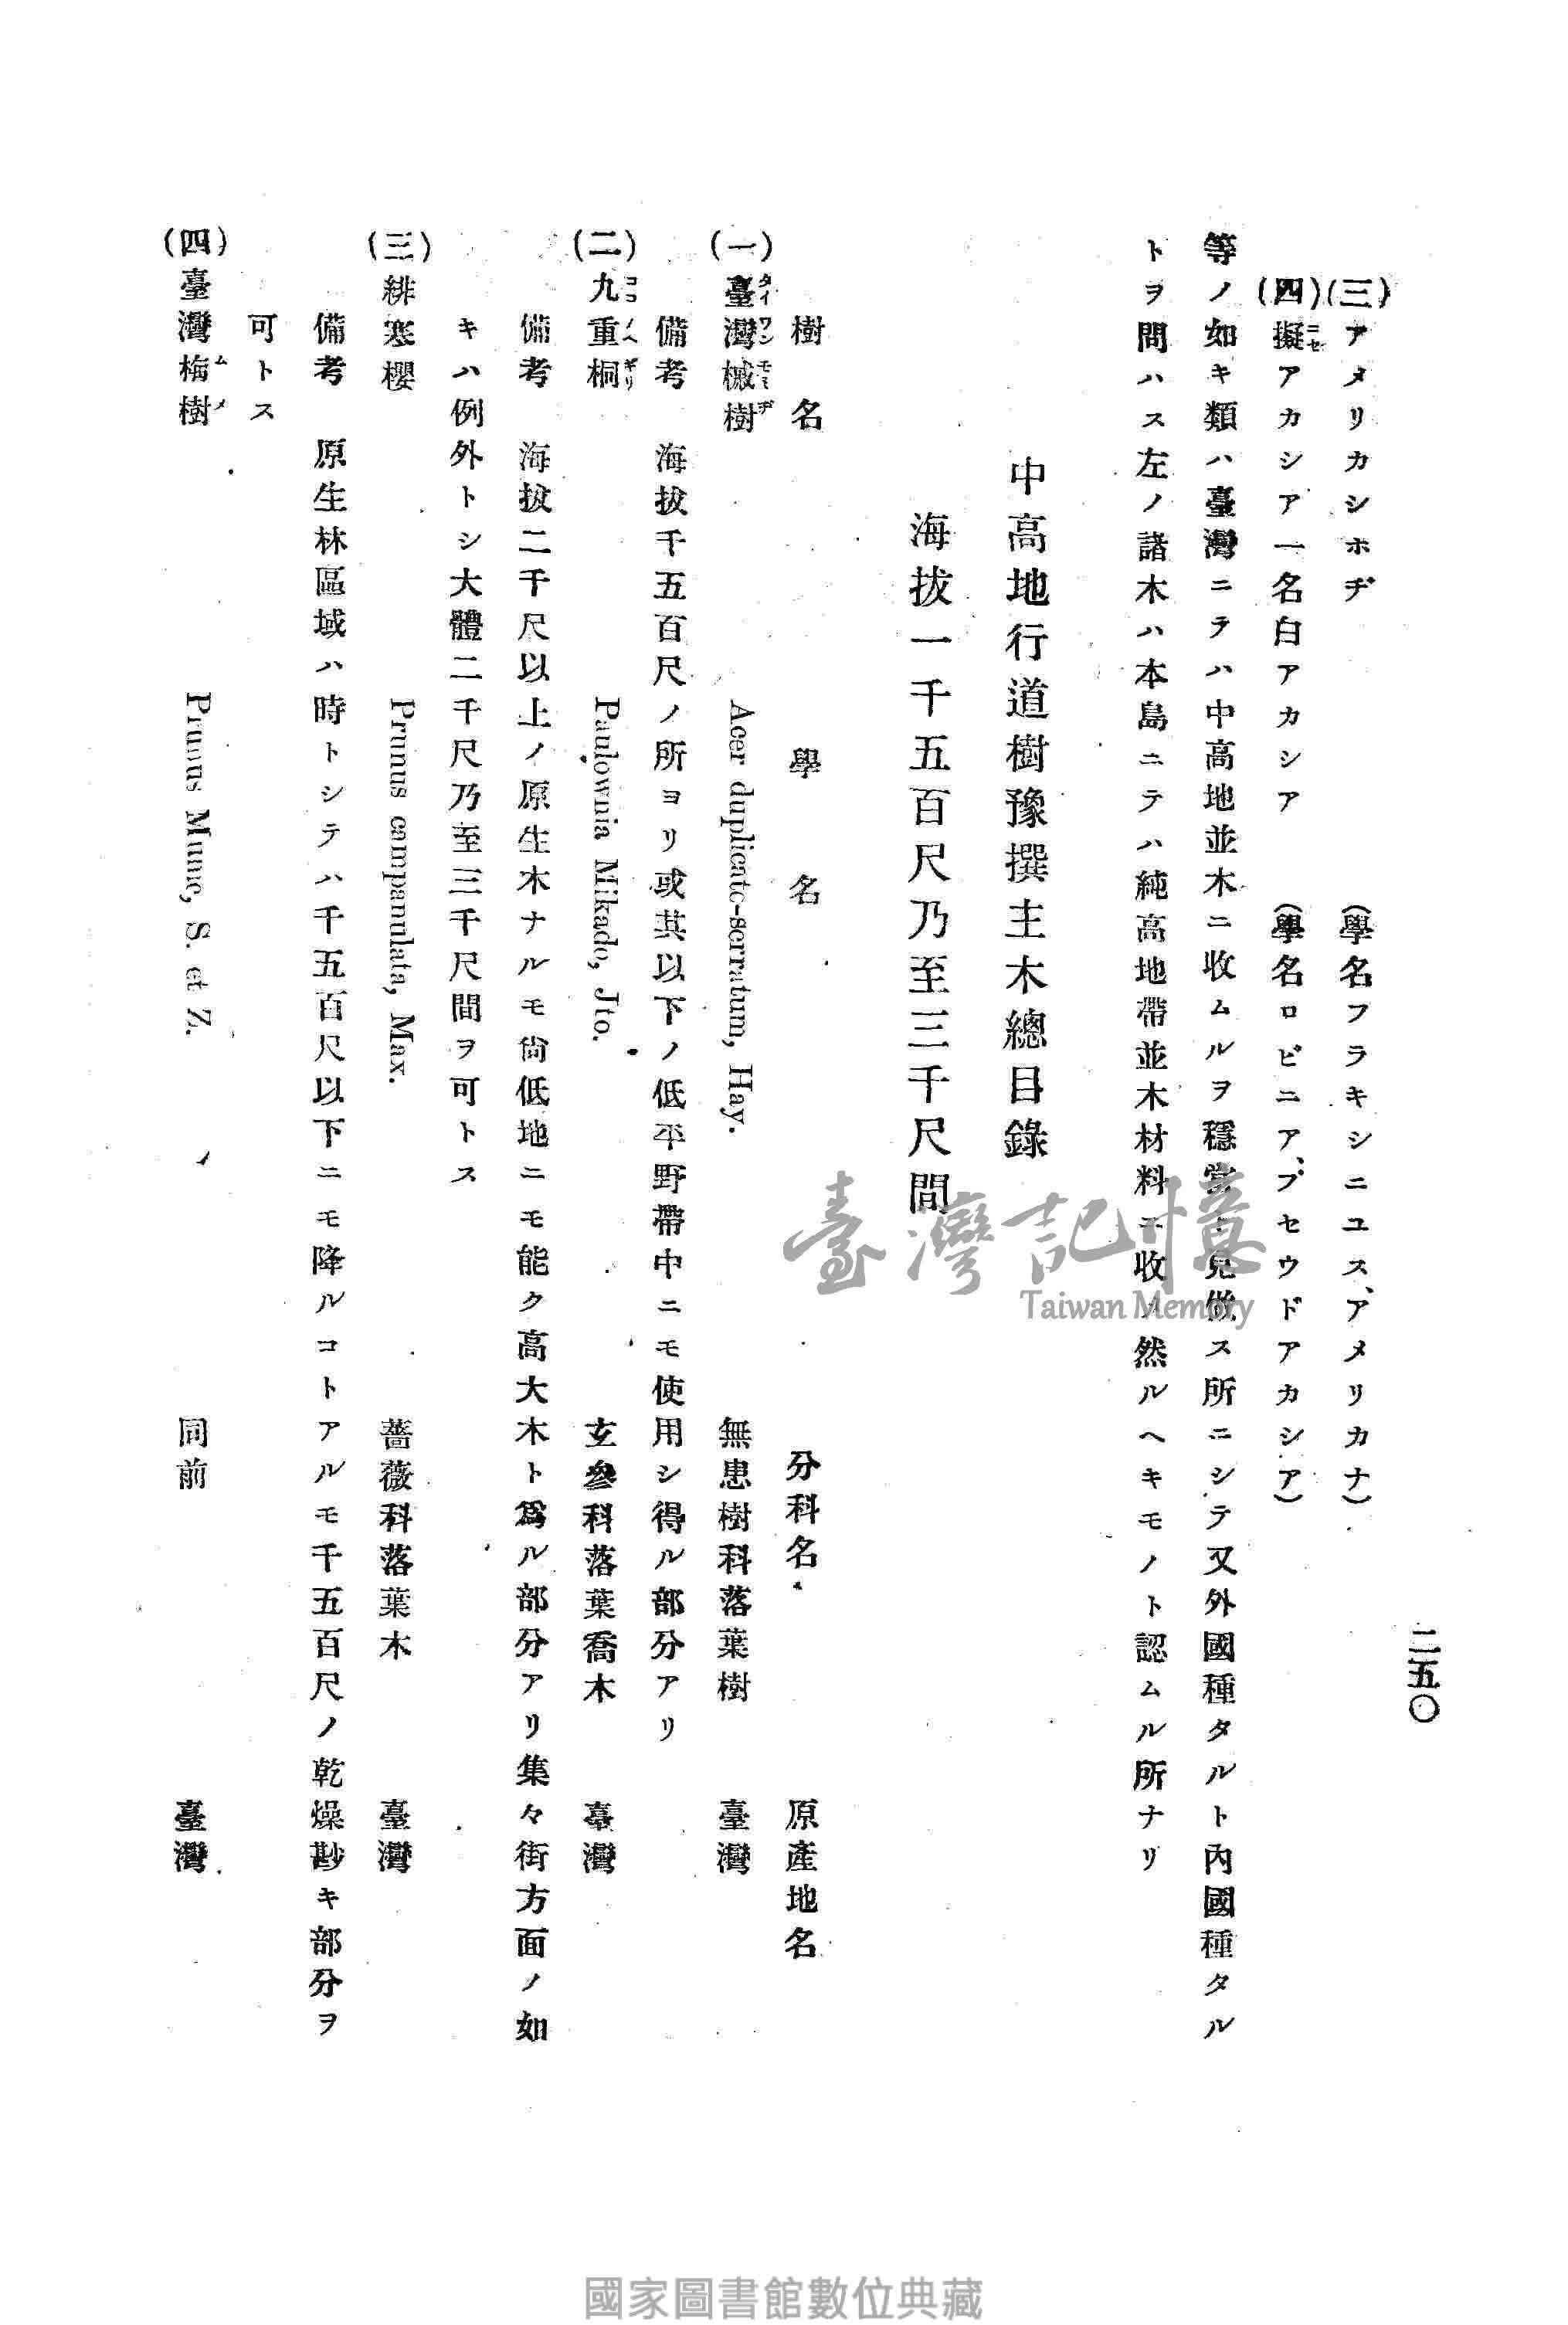 二五〇
(三)アメリカシホヂ　(學名フラキシニユス、アメリカナ)
(四)擬アカシア一名白アカシア　(學名ロビニア、プセウドアカシア)
ニセ
等ノ如キ類ハ臺灣ニテハ中高地並木ニ收ムルヲ穩當ト見做ス所ニシテ又外國種タルト內國種タル
トヲ問ハス左ノ諸木ハ本島ニテハ純高地帶並木材料ニ收メ然ルヘキモノト認ムル所ナリ
中高地行道樹豫撰主木總目錄
海拔一千五百尺乃至三千尺間
樹名　學名　分科名　原產地名
(一)臺灣槭樹　Acer duplicato-serratum, Hay.　無患樹科落葉樹　臺灣
タイワンモミヂ
備考　海拔千五百尺ノ所ヨリ或其以下ノ低平野帶中ニモ使用シ得ル部分アリ
(二)九重桐　Paulownia Mikado, Jto.　玄參科落葉喬木　臺灣
ココノヘギリ
備考　海拔二千尺以上ノ原生木ナルモ尙低地ニモ能ク高大木ト爲ル部分アリ集々街方面ノ如
キハ例外トシ大體二千尺乃至三千尺間ヲ可トス
(三)緋寒櫻　Prunus campanulata, Max.　薔薇科落葉木　臺灣
備考　原生林區域ハ時トシテハ千五百尺以下ニモ降ルコトアルモ千五百尺ノ乾燥尠キ部分ヲ
可トス
(四)臺灣梅樹　Prunus Mume, S. et Z.　同前　臺灣
ムメ
臺灣記憶
Taiwan Memory
國家圖書館數位典藏